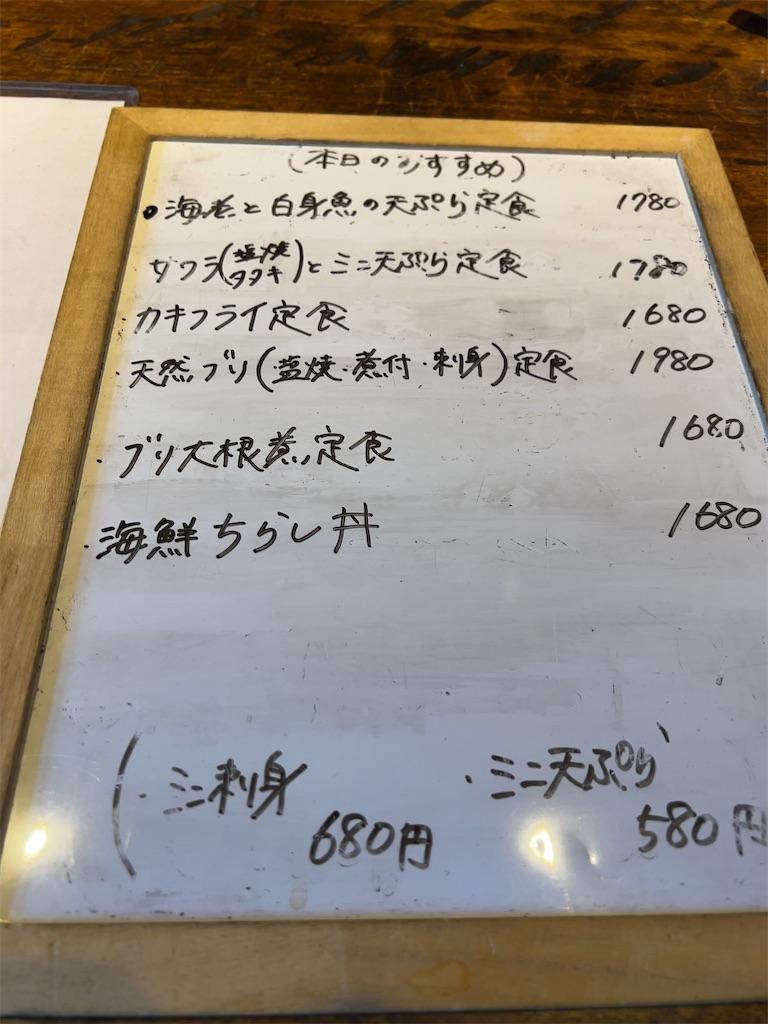 (本日のおすすめ)
• 海老と白身魚の天ぷら定食 1780
サワラ(塩焼 タタキ)とミニ天ぷら定食 1780
・カキフライ定食 1680
・天然ブリ(塩焼・煮付・刺身)定食 1980
・ブリ大根煮定食 1680
・海鮮ちらし丼 1680
(・ミニ刺身 ・ミニ天ぷら
680円 580円